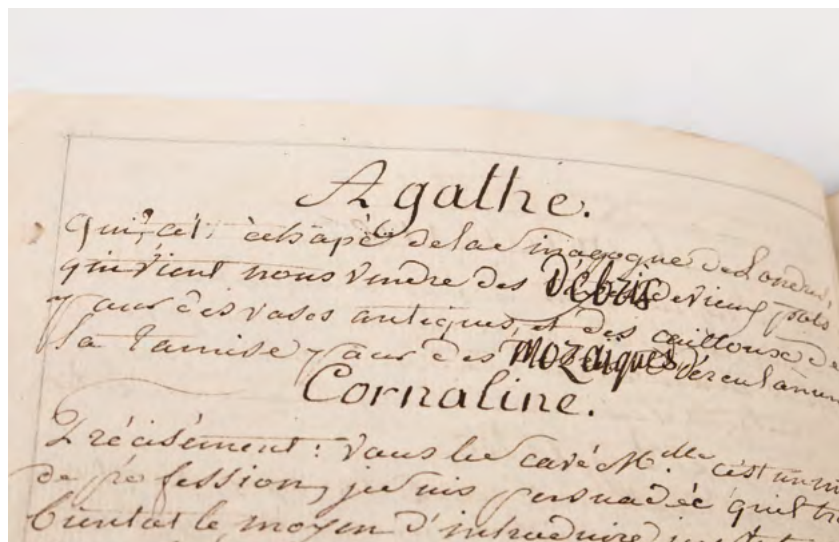 Agathe.
qui, échapé de la Sinagogue de Londres
qui vient nous vendre des Débris de vieux pots
pour des vases antiques, et des cailloux de
la Tamise pour des mozaïques
Cornaline.
Précisément: vous M.lle c'est un
de profession, je suis persuadée qu'il
bientot le moyen d'introduire